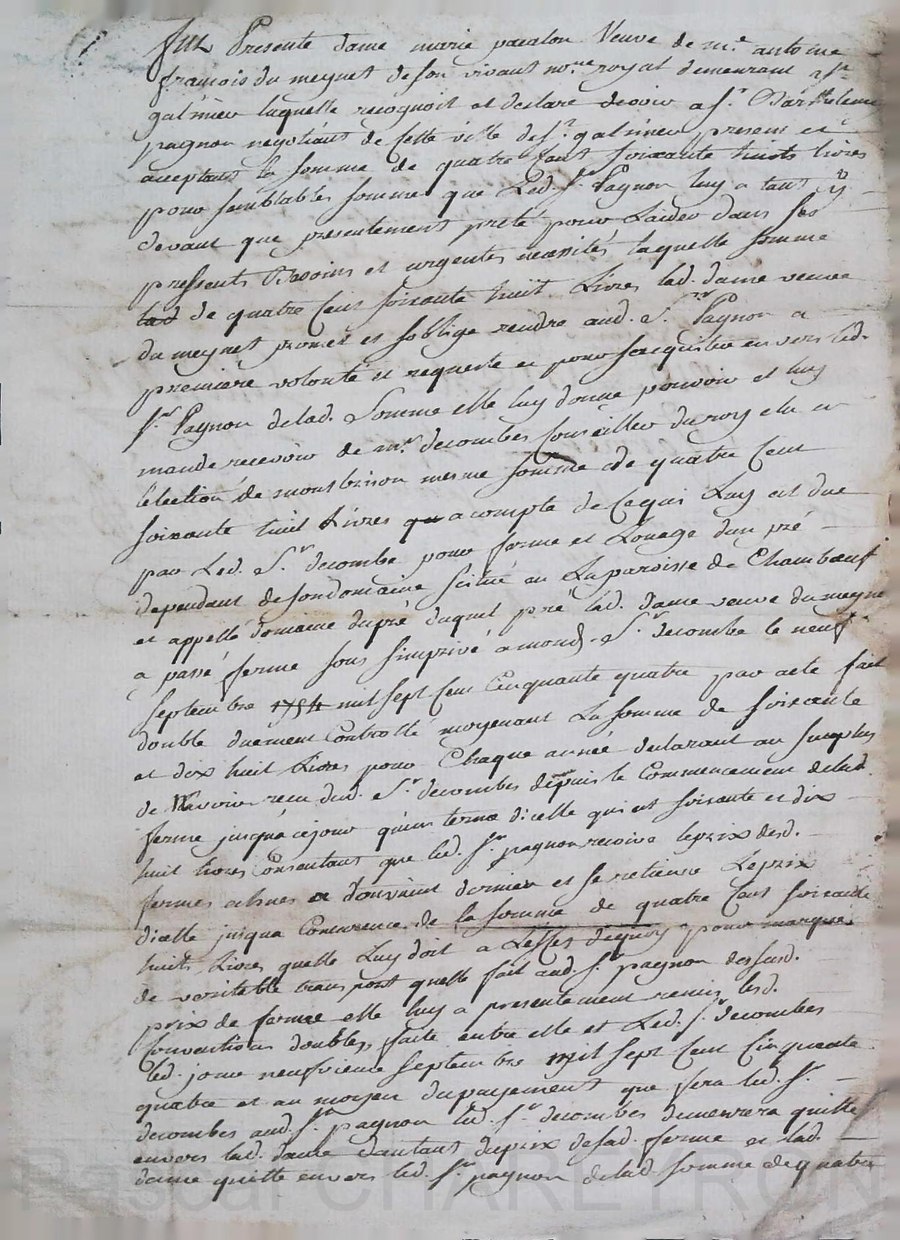 fut Presente dame marie pacalon Veuve de me. antoine
françois du meynet de son vivant nore. royal demeurant a st.
galmier laquelle recognoit et declare devoir a sr. Barthelemy
pagnon negotiant de cette ville de st. galmier present et
aceptant la somme de quatre cent soixante huit livres
pour semblables somme que Led. sr. Pagnon luy a tant cy
devant que presentement preté pour Laider dans ses
pressents Besoins et urgentes necessités laquelle somme
lad de quatre Cent soixante huit Livres lad. dame veuve
du meynet promet et soblige rendre aud. Sr. Pagnon a
premiere volonté et requeste et pour sacquitter envers led.
sr. Pagnon de lad. Somme elle luy donne pouvoir et luy
mande recevoir de mr. decombes Conseiller du roy elu en
lelection de montbrison mesme somme de quatre Cent
soixante huit Livres qu a compte de Ce qui Luy est due
par Led. Sr. decombe pour ferme et Louage dun pré
dependant de son domaine scitué en La paroisse de Chambœuf
et appellé domaine du pré duquel pré lad. dame veuve du meynet
a passé ferme sous simprivé a mond. Sr. decombe le neuf
septembre 1754 mil sept Cent Cinquante quatre par acte fait
double duement Controllé moyenant La somme de soixante
et dix huit Livres pour Chaque année declarant au surplus
de Navoir recu dud. Sr. decombes depuis le Commencement de lad.
ferme jusqua ce jour qu'un terme dicelle qui est soixante et dix
huit livres Consentant que led. sr. pagnon recoive le prix desd.
fermes dernier et se retienne Le prix
dicelle jusqua Concurence de la somme de quatre Cent soixante
huit Livres quelle Luy doit pour marque
de veritable transport quelle fait aud. sr. pagnon dessusd.
prix de ferme elle luy a presentement remis lesd.
Conventions doubles faite entre elle et Led. sr. decombes
led. jour neufvieme septembre mil sept Cent Cinquante
quatre et au moyen du payement que fera led. sr.
decombes aud. sr. pagnon led. sr. decombes demeurera quitte
envers lad. dame dautant du prix de sad. ferme et lad.
dame quitte envers led. sr. pagnon de lad. somme de quatre
Pascal CHAREYRON